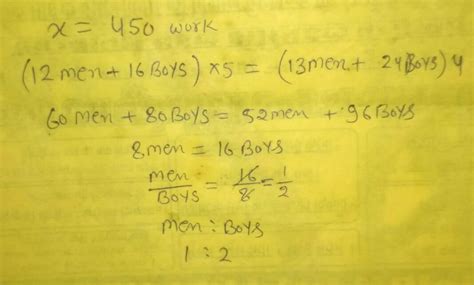 x = 450 work
(12 men + 16 Boys) × 5 = (13 men + 24 Boys) 4
60 men + 80 Boys = 52 men + 96 Boys
8 men = 16 Boys
men/Boys = 16/8 = 1/2
men : Boys
1 : 2